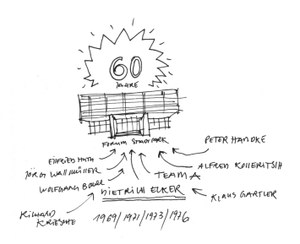 60
JAHRE
FORUM STADTPARK
PETER HANDKE
JÖRG WALLMÜLLER
ALFRED KOLLERITSCH
WOLFGANG
TEAM A
DIETRICH ECKER
KLAUS GARTLER
RICHARD
KRIESCHE
1969/1971/1973/1976